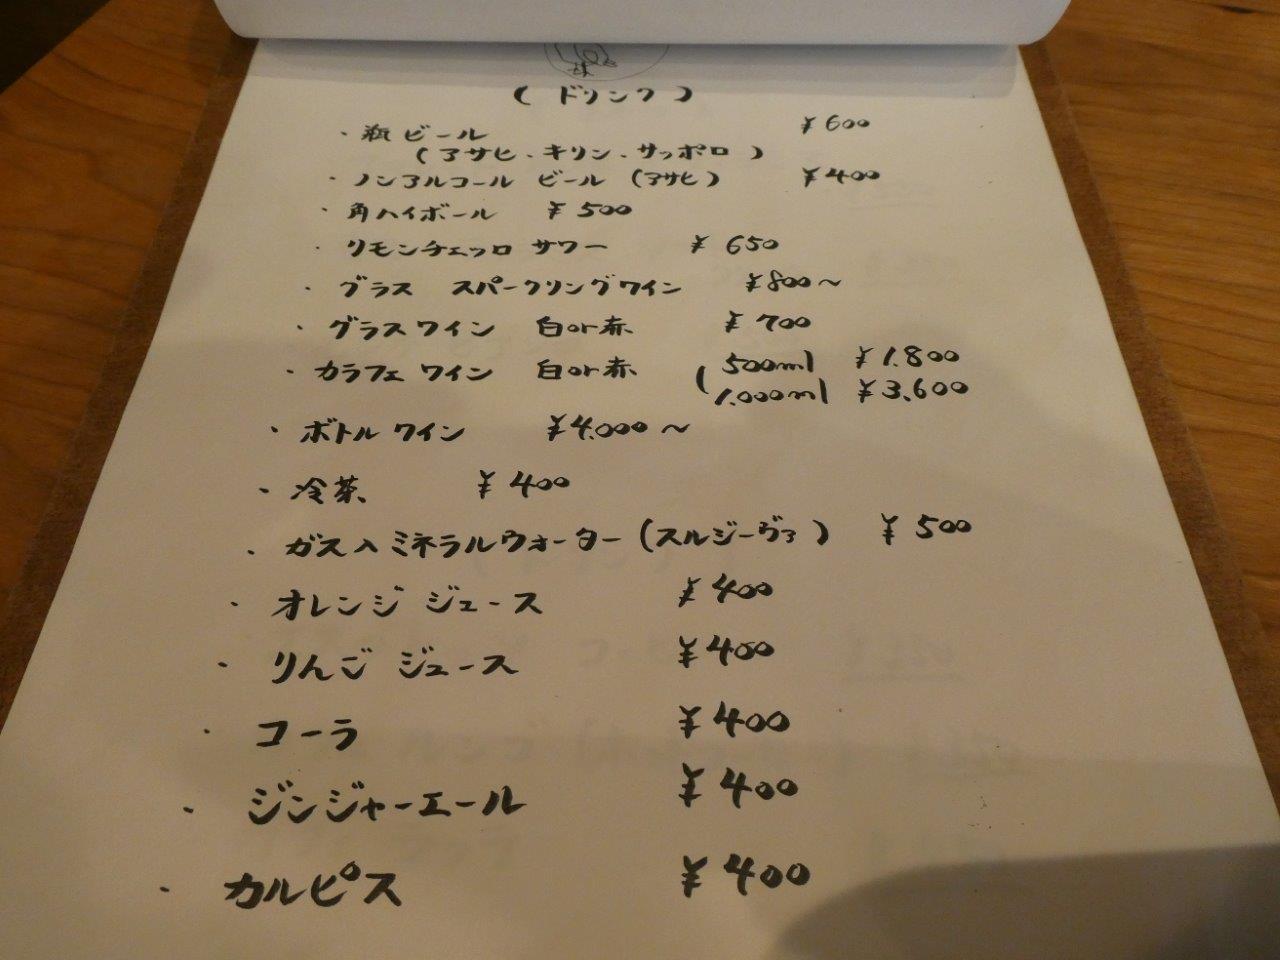 (ドリンク)
・瓶ビール ¥600
(アサヒ、キリン、サッポロ)
・ノンアルコール ビール (アサヒ) ¥400
・角ハイボール ¥500
・リモンチェッロ サワー ¥650
・グラス スパークリングワイン ¥800～
・グラスワイン 白or赤 ¥700
・カラフェ ワイン 白or赤 (500ml ¥1.800
1.000ml ¥3.600
・ボトル ワイン ¥4.000～
・冷茶 ¥400
・ガス入ミネラルウォーター(スルジーヴァ) ¥500
・オレンジ ジュース ¥400
・りんご ジュース ¥400
・コーラ ¥400
・ジンジャーエール ¥400
・カルピス ¥400